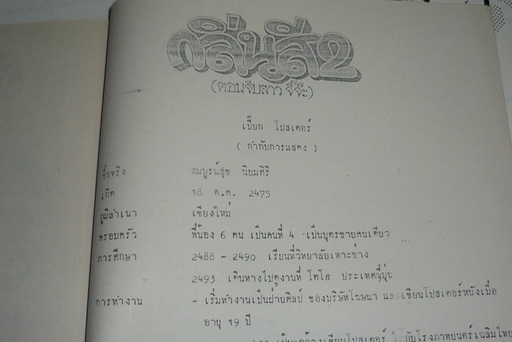 กลิ่นสี 2
(ตอนจีบสาว จี๋จ๊ะ)
เปี๊ยก โปสเตอร์
( กำกับการแสดง )
ชื่อจริง สมบูรณ์สุข นิยมศิริ
เกิด 18 ต.ค. 2475
ภูมิลำเนา เชียงใหม่
ครอบครัว พี่น้อง 6 คน เป็นคนที่ 4 เป็นบุตรชายคนเดียว
การศึกษา 2488 - 2490 เรียนที่วิทยาลัยเพาะช่าง
2493 เดินทางไปดูงานที่ โตโฮ ประเทศญี่ปุ่น
การทำงาน - เริ่มทำงานเป็นฝ่ายศิลป์ ของบริษัทโฆษณา และเขียนโปสเตอร์หนังเมื่อ
อายุ 19 ปี
เขียนโปสเตอร์ ให้กับโรงภาพยนตร์ เฉลิมไทย